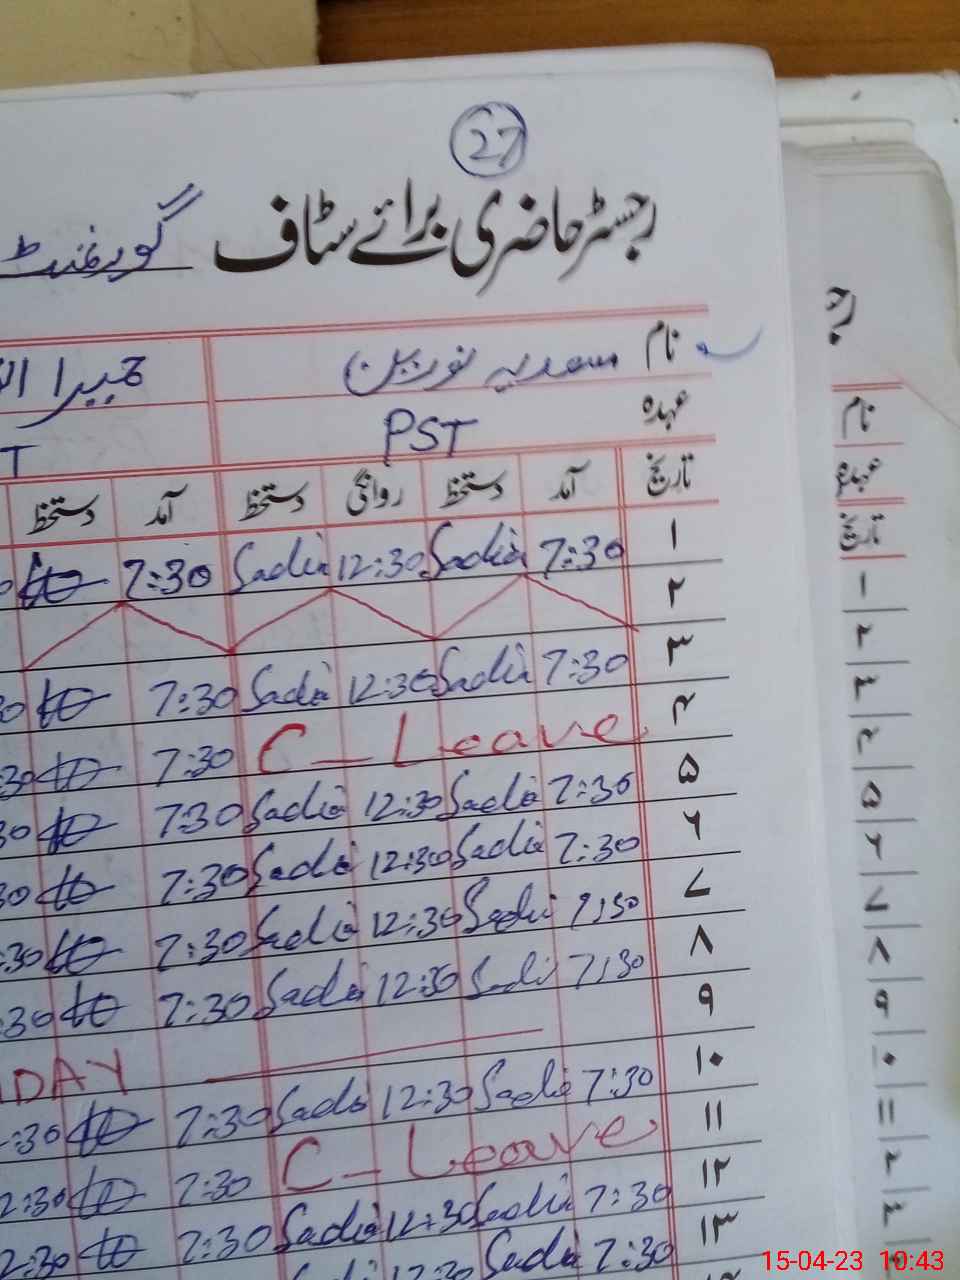 27
رجسٹر حاضری برائے سٹاف گورنمنٹ
نام سعدیہ نورین حمیرا
عہدہ PST T
تاریخ آمد دستخط روانگی دستخط آمد دستخط
۱ 7:30 Sadia 12:30 Sadia 7:30
۲
۳ 7:30 Sadia 12:30 Sadia 7:30
۴ C-Leave 7:30
۵ 7:30 Sadia 12:30 Sadia 7:30
۶ 7:30 Sadia 12:30 Sadia 7:30
۷ 7:30 Sadia 12:30 Sadia 7:30
۸ 7:30 Sadia 12:30 Sadia 7:30
۹ DAY
۱۰ 7:30 Sadia 12:30 Sadia 7:30
۱۱ C-Leave 7:30
۱۲ 7:30 Sadia 12:30 Sadia 7:30
۱۳ 7:30 Sadia 12:30 Sadia
نام
عہدہ
تاریخ
۱
۲
۳
۴
۵
۶
۷
۸
۹
۱۰
۱۱
15-04-23 10:43